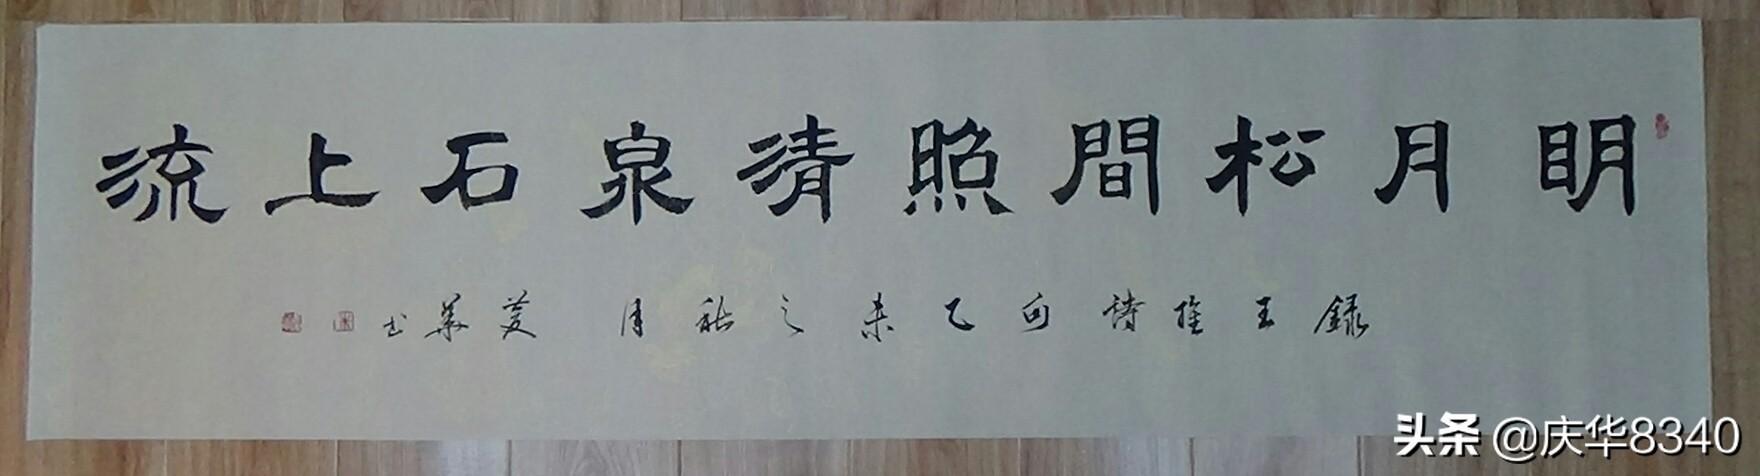 明月松間照清泉石上流
録王维詩句乙未之秋月慶華书
头条 @庆华8340